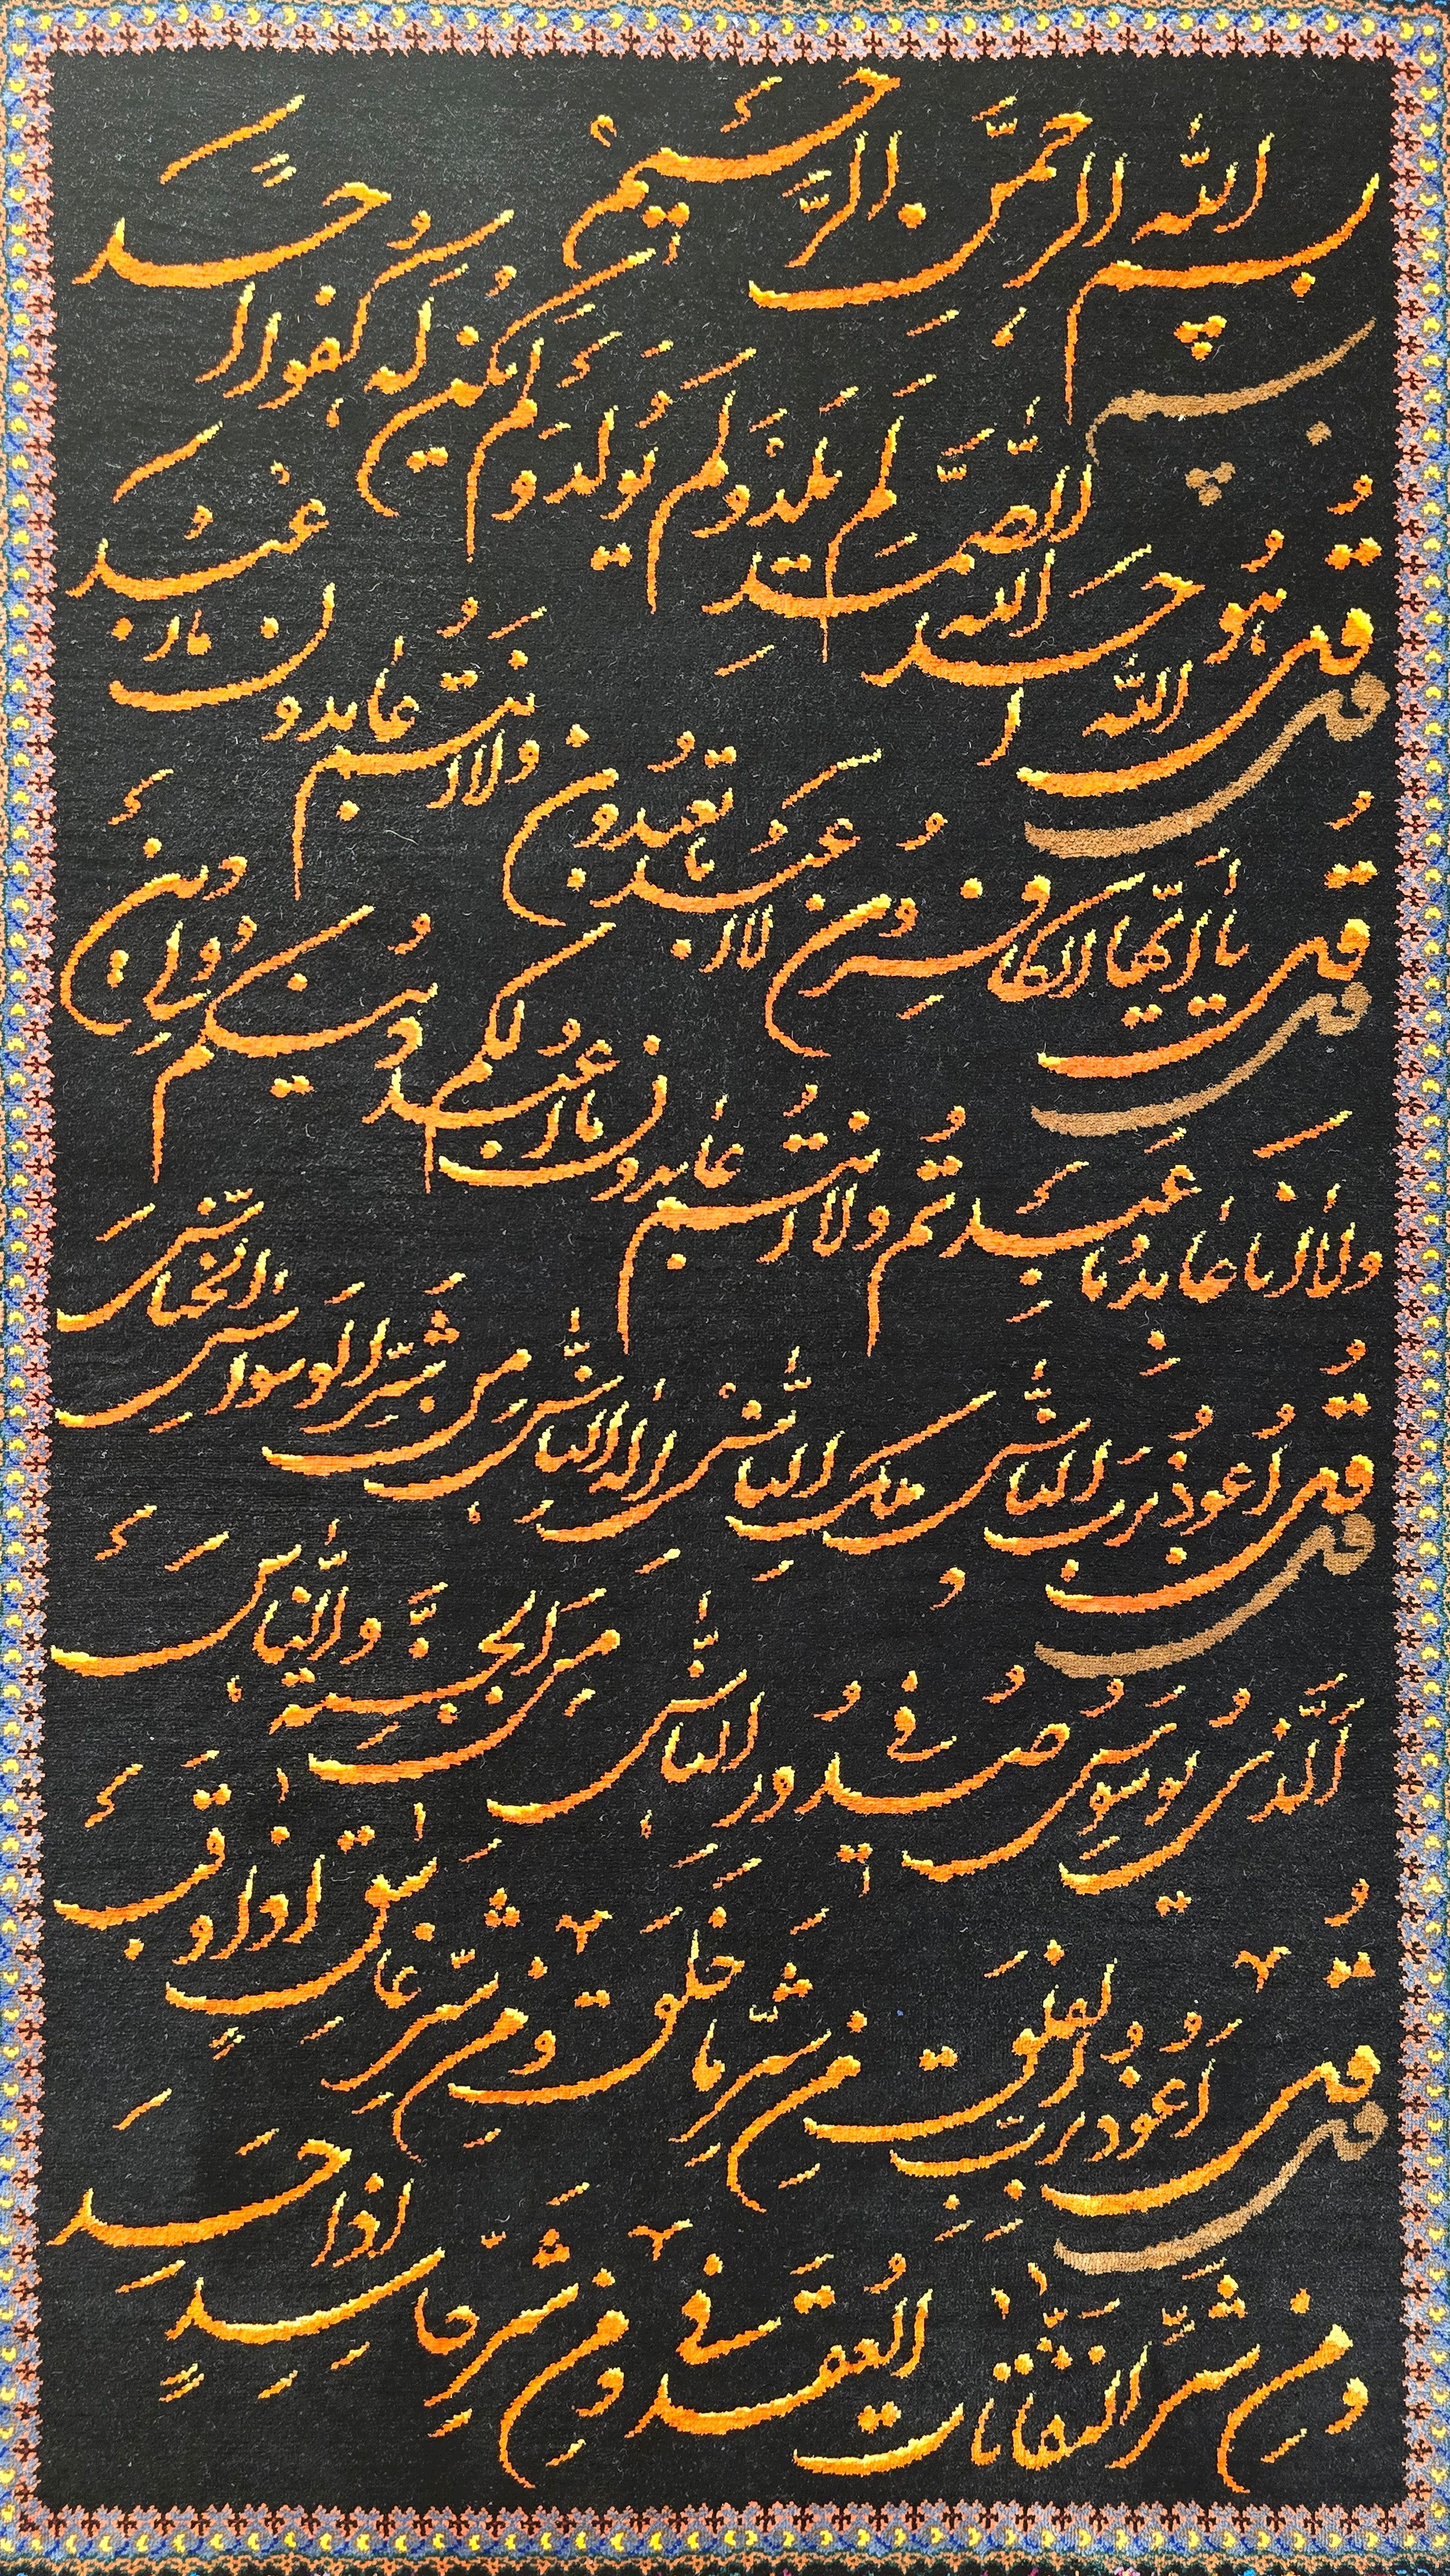 بسم الله الرحمن الرحيم
قل هو الله احد الله الصمد لم يلد ولم يولد ولم يكن له كفوا احد
قل يا ايها الكافرون لا اعبد ما تعبدون ولا انتم عابدون ما اعبد
ولا انا عابد ما عبدتم ولا انتم عابدون ما اعبد لكم دينكم ولي دين
قل اعوذ برب الناس ملك الناس اله الناس من شر الوسواس الخناس
الذي يوسوس في صدور الناس من الجنة والناس
قل اعوذ برب الفلق من شر ما خلق ومن شر غاسق اذا وقب
ومن شر النفاثات في العقد ومن شر حاسد اذا حسد